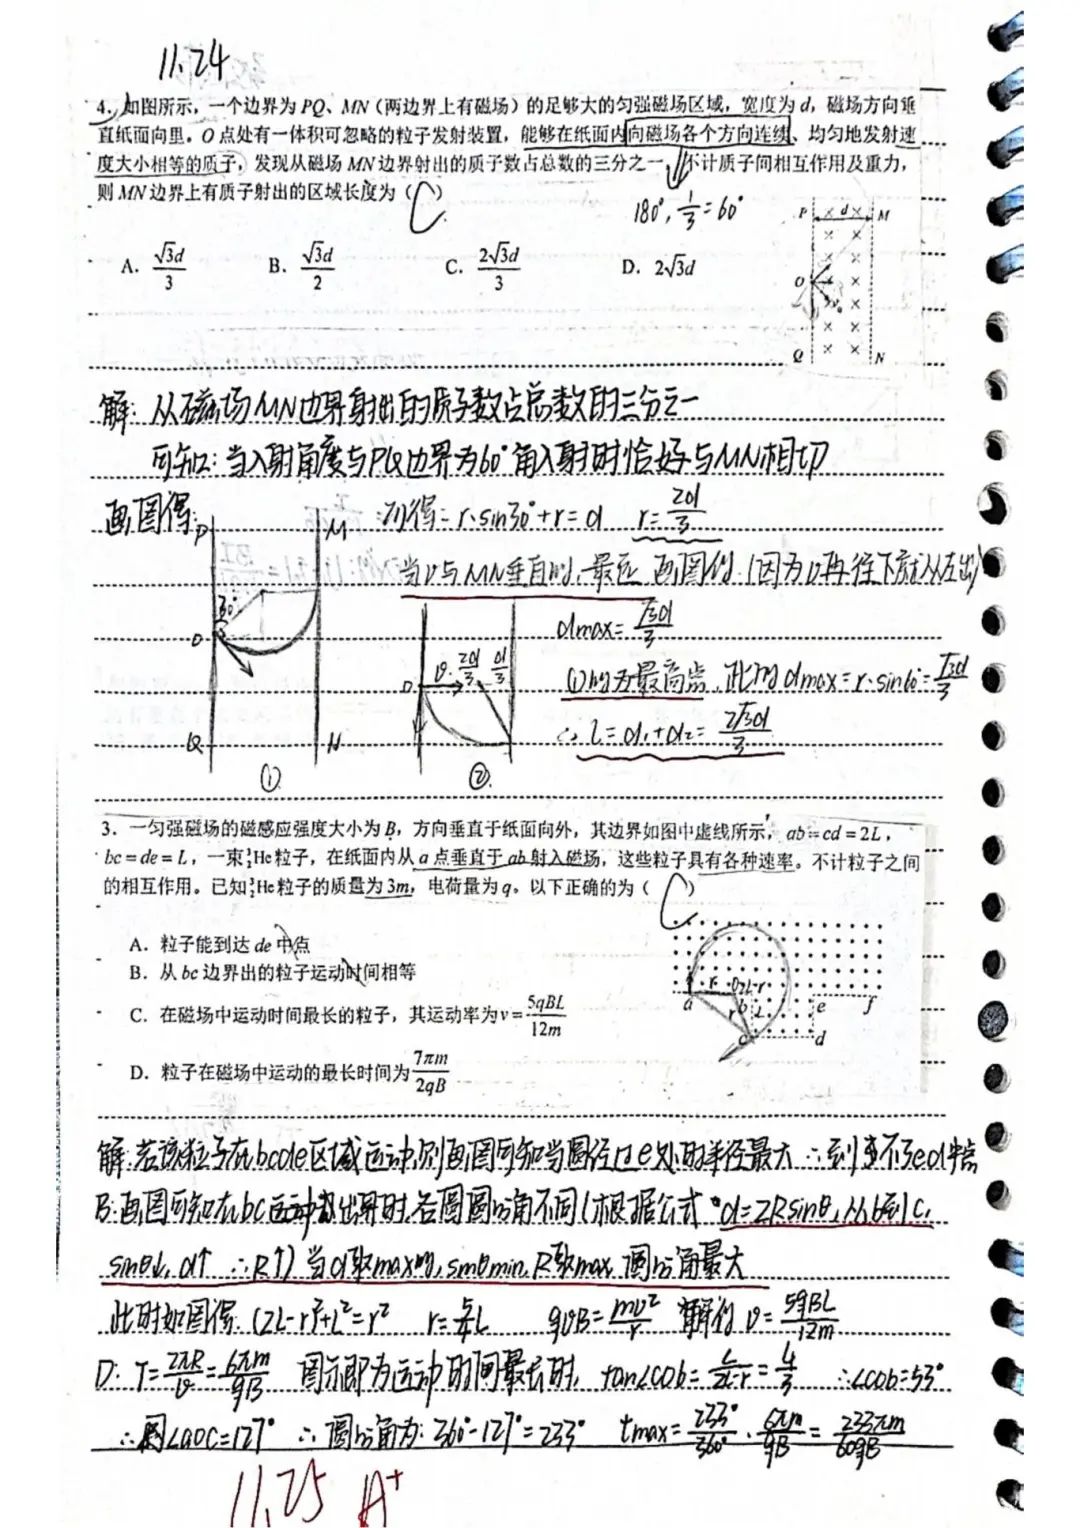 11.24
4. 如图所示，一个边界为 PQ、MN（两边界上有磁场）的足够大的匀强磁场区域，宽度为 d，磁场方向垂
直纸面向里。O 点处有一体积可忽略的粒子发射装置，能够在纸面内向磁场各个方向连续、均匀地发射速
度大小相等的质子，发现从磁场 MN 边界射出的质子数占总数的三分之一，不计质子间相互作用及重力，
则 MN 边界上有质子射出的区域长度为（C）
180°, 1/3 = 60°
A. √3d/3 B. √3d/2 C. 2√3d/3 D. 2√3d
P × d × M
O
Q N
解: 从磁场MN边界射出的质子数占总数的三分之一
可知: 当入射角度与PQ边界为60°角入射时恰好与MN相切
画图得:
列得= r·sin30°+r=d r=2d/3
当v与MN垂直时, 最远 画图得 (因为v再往下就从左出)
P M 30° O Q N ①
v 2d/3 d/3 ②
dmax= √3d/3
①时为最高点, 此时dmax=r·sin60°=√3d/3
∴ l=d₁+d₂= 2√3d/3
3. 一匀强磁场的磁感应强度大小为 B，方向垂直于纸面向外，其边界如图中虚线所示，ab=cd=2L，
bc=de=L，一束³₂He 粒子，在纸面内从 a 点垂直于 ab 射入磁场，这些粒子具有各种速率。不计粒子之间
的相互作用。已知³₂He 粒子的质量为 3m，电荷量为 q。以下正确的为（C）
A. 粒子能到达 de 中点
B. 从 bc 边界出的粒子运动时间相等
C. 在磁场中运动时间最长的粒子，其运动率为 v=5qBL/12m
D. 粒子在磁场中运动的最长时间为 7πm/2qB
r O 2L-r
a b L e f
r c d
解: 若该粒子在bcde区域运动, 则画图可知当圆经过e处时半径最大 ∴到达不了ed中点
B: 画图可知在bc运动出界时, 各圆圆心角不同 (根据公式 d=2Rsinθ, 从b到c,
sinθ↓, d↑ ∴R↑) 当d取max时, sinθmin, R取max 圆心角最大
此时如图得: (2L-r)²+L²=r² r=5/4L qvB=mv²/r 解得 v=5qBL/12m
D: T=2πR/v=6πm/qB 图示即为运动时间最长时, tan∠cob=L/2L-r=4/3 ∴∠cob=53°
∴圆∠aoc=127° ∴圆心角为: 360°-127°=233° tmax=233°/360°·6πm/qB=233πm/60qB
11.25 A⁺